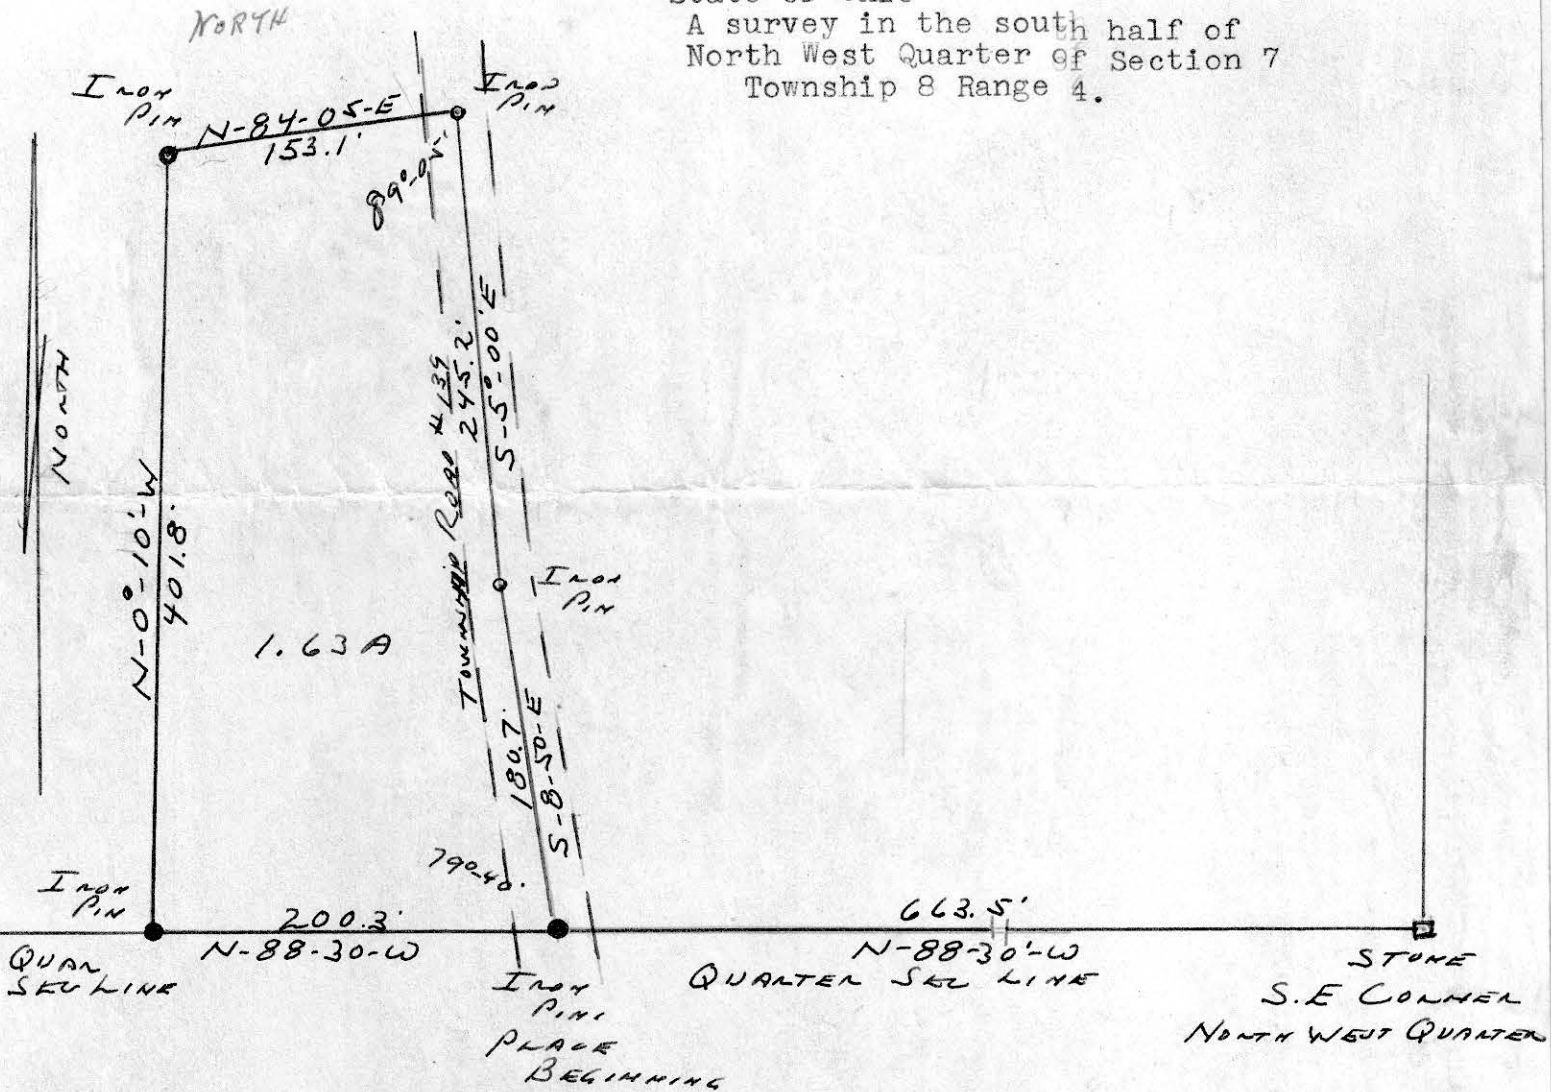 NORTH
A survey in the south half of
North West Quarter of Section 7
Township 8 Range 4.
Iron
Pin
N-84-05-E
153.1'
Iron
Pin
89°-05'
NORTH
N-0°-10'-W
401.8'
1.63 A
Township Road #139
245.2'
S-5°-00'E
Iron
Pin
180.7'
S-8-50-E
79°-40'
Iron
Pin
200.3'
N-88-30-W
663.5'
N-88-30'-W
QUAR
SEC LINE
Iron
Pin
PLACE
BEGINNING
QUARTER SEC LINE
STONE
S.E CORNER
NORTH WEST QUARTER